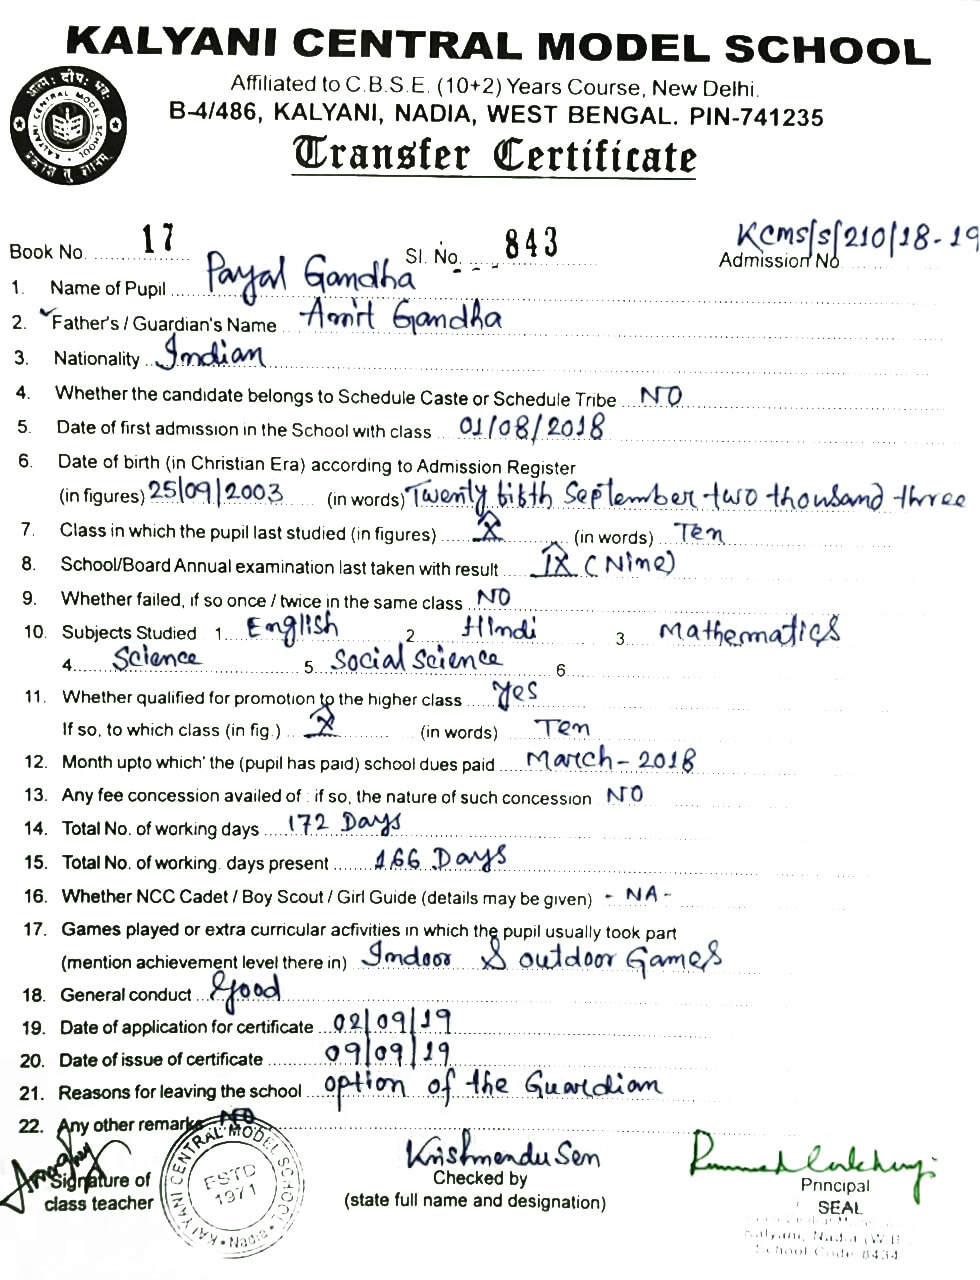 KALYANI CENTRAL MODEL SCHOOL
Affiliated to C.B.S.E. (10+2) Years Course, New Delhi.
B-4/486, KALYANI, NADIA, WEST BENGAL. PIN-741235
Transfer Certificate
आत्म: दीप: भव:
KALYANI CENTRAL MODEL SCHOOL
Book No. 17 Sl. No. 843 Admission No KCMS/S/210/18-19
1. Name of Pupil Payal Gandha
2. Father's / Guardian's Name Amit Gandha
3. Nationality Indian
4. Whether the candidate belongs to Schedule Caste or Schedule Tribe NO
5. Date of first admission in the School with class 01/08/2018
6. Date of birth (in Christian Era) according to Admission Register
(in figures) 25/09/2003 (in words) Twenty bifth September two thousand three
7. Class in which the pupil last studied (in figures) X (in words) Ten
8. School/Board Annual examination last taken with result IX (Nine)
9. Whether failed, if so once / twice in the same class NO
10. Subjects Studied 1. English 2. Hindi 3. Mathematics
4. Science 5. Social Science 6.
11. Whether qualified for promotion to the higher class Yes
If so, to which class (in fig.) X (in words) Ten
12. Month upto which' the (pupil has paid) school dues paid March - 2018
13. Any fee concession availed of : if so, the nature of such concession NO
14. Total No. of working days 172 Days
15. Total No. of working. days present 166 Days
16. Whether NCC Cadet / Boy Scout / Girl Guide (details may be given) - NA -
17. Games played or extra curricular acfivities in which the pupil usually took part
(mention achievement level there in) Indoor & outdoor Games
18. General conduct Good
19. Date of application for certificate 02/09/19
20. Date of issue of certificate 09/09/19
21. Reasons for leaving the school option of the Guardian
22. Any other remarks
KALYANI CENTRAL MODEL SCHOOL
ESTD
1971
Nadia
Krishnendu Sen
Signature of
class teacher
Checked by
(state full name and designation)
Principal
SEAL
Kalyani, Nadia (W.B.)
School Code 8434